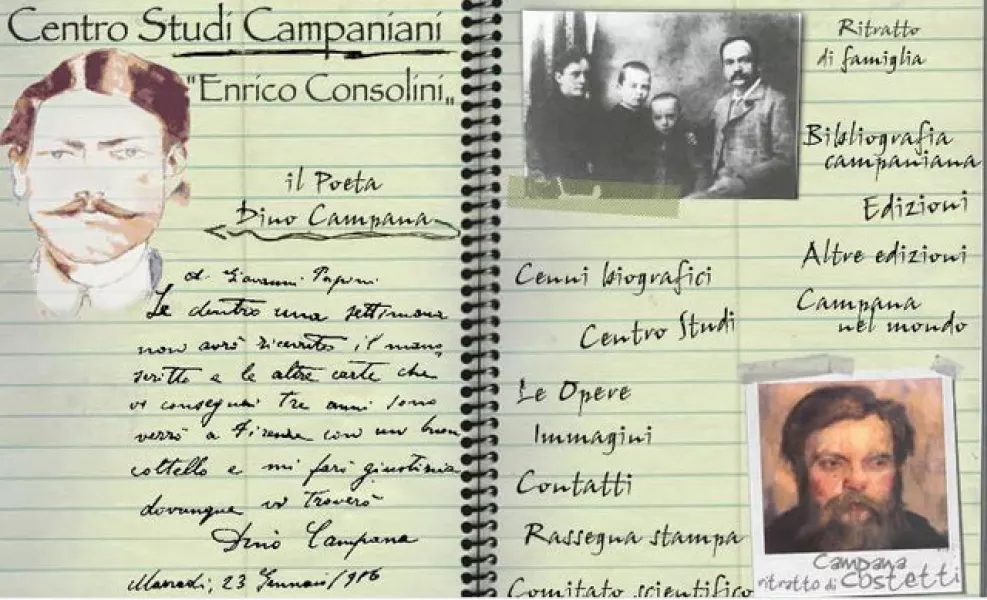 Centro Studi Campaniani
"Enrico Consolini„
il Poeta
Dino Campana
a Giovanni Papini
Se dentro una settimana
non avrò ricevuto il mano
scritto e le altre carte che
vi consegnai tre anni sono
verrò a Firenze con un buon
coltello e mi farò giustizia
dovunque vi troverò
Dino Campana
Marradi, 23 Gennaio/916
Ritratto
di famiglia
Bibliografia
campaniana
Edizioni
Altre edizioni
Campana
nel mondo
Cenni biografici
Centro Studi
Le Opere
Immagini
Contatti
Rassegna stampa
Comitato scientifico
Campana
ritratto di Costetti